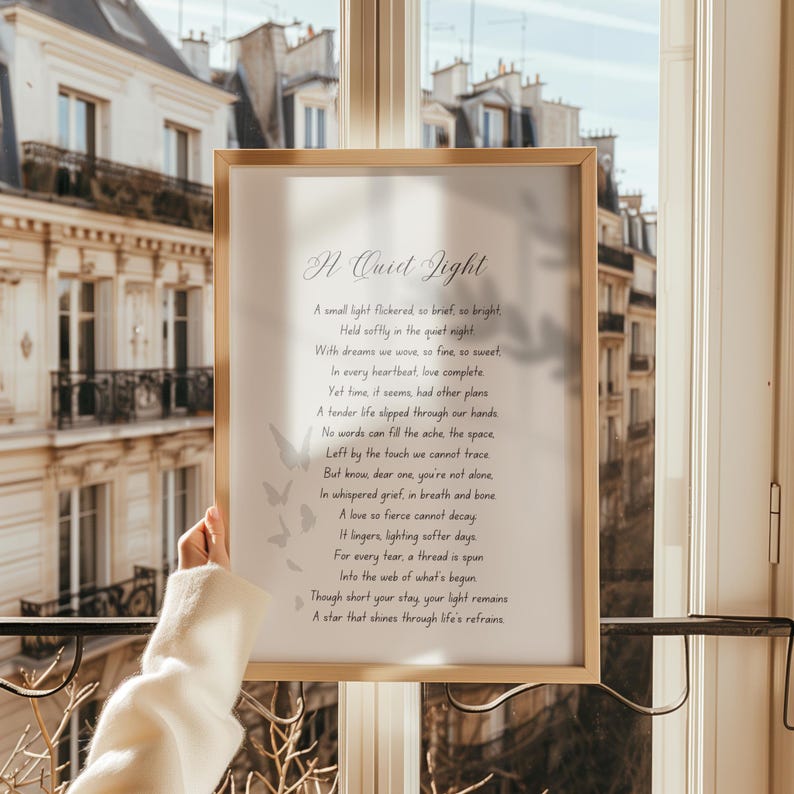 A Quiet Light
A small light flickered, so brief, so bright,
Held softly in the quiet night.
With dreams we wove, so fine, so sweet,
In every heartbeat, love complete.
Yet time, it seems, had other plans
A tender life slipped through our hands.
No words can fill the ache, the space,
Left by the touch we cannot trace.
But know, dear one, you're not alone,
In whispered grief, in breath and bone.
A love so fierce cannot decay;
It lingers, lighting softer days.
For every tear, a thread is spun
Into the web of what's begun.
Though short your stay, your light remains
A star that shines through life's refrains.